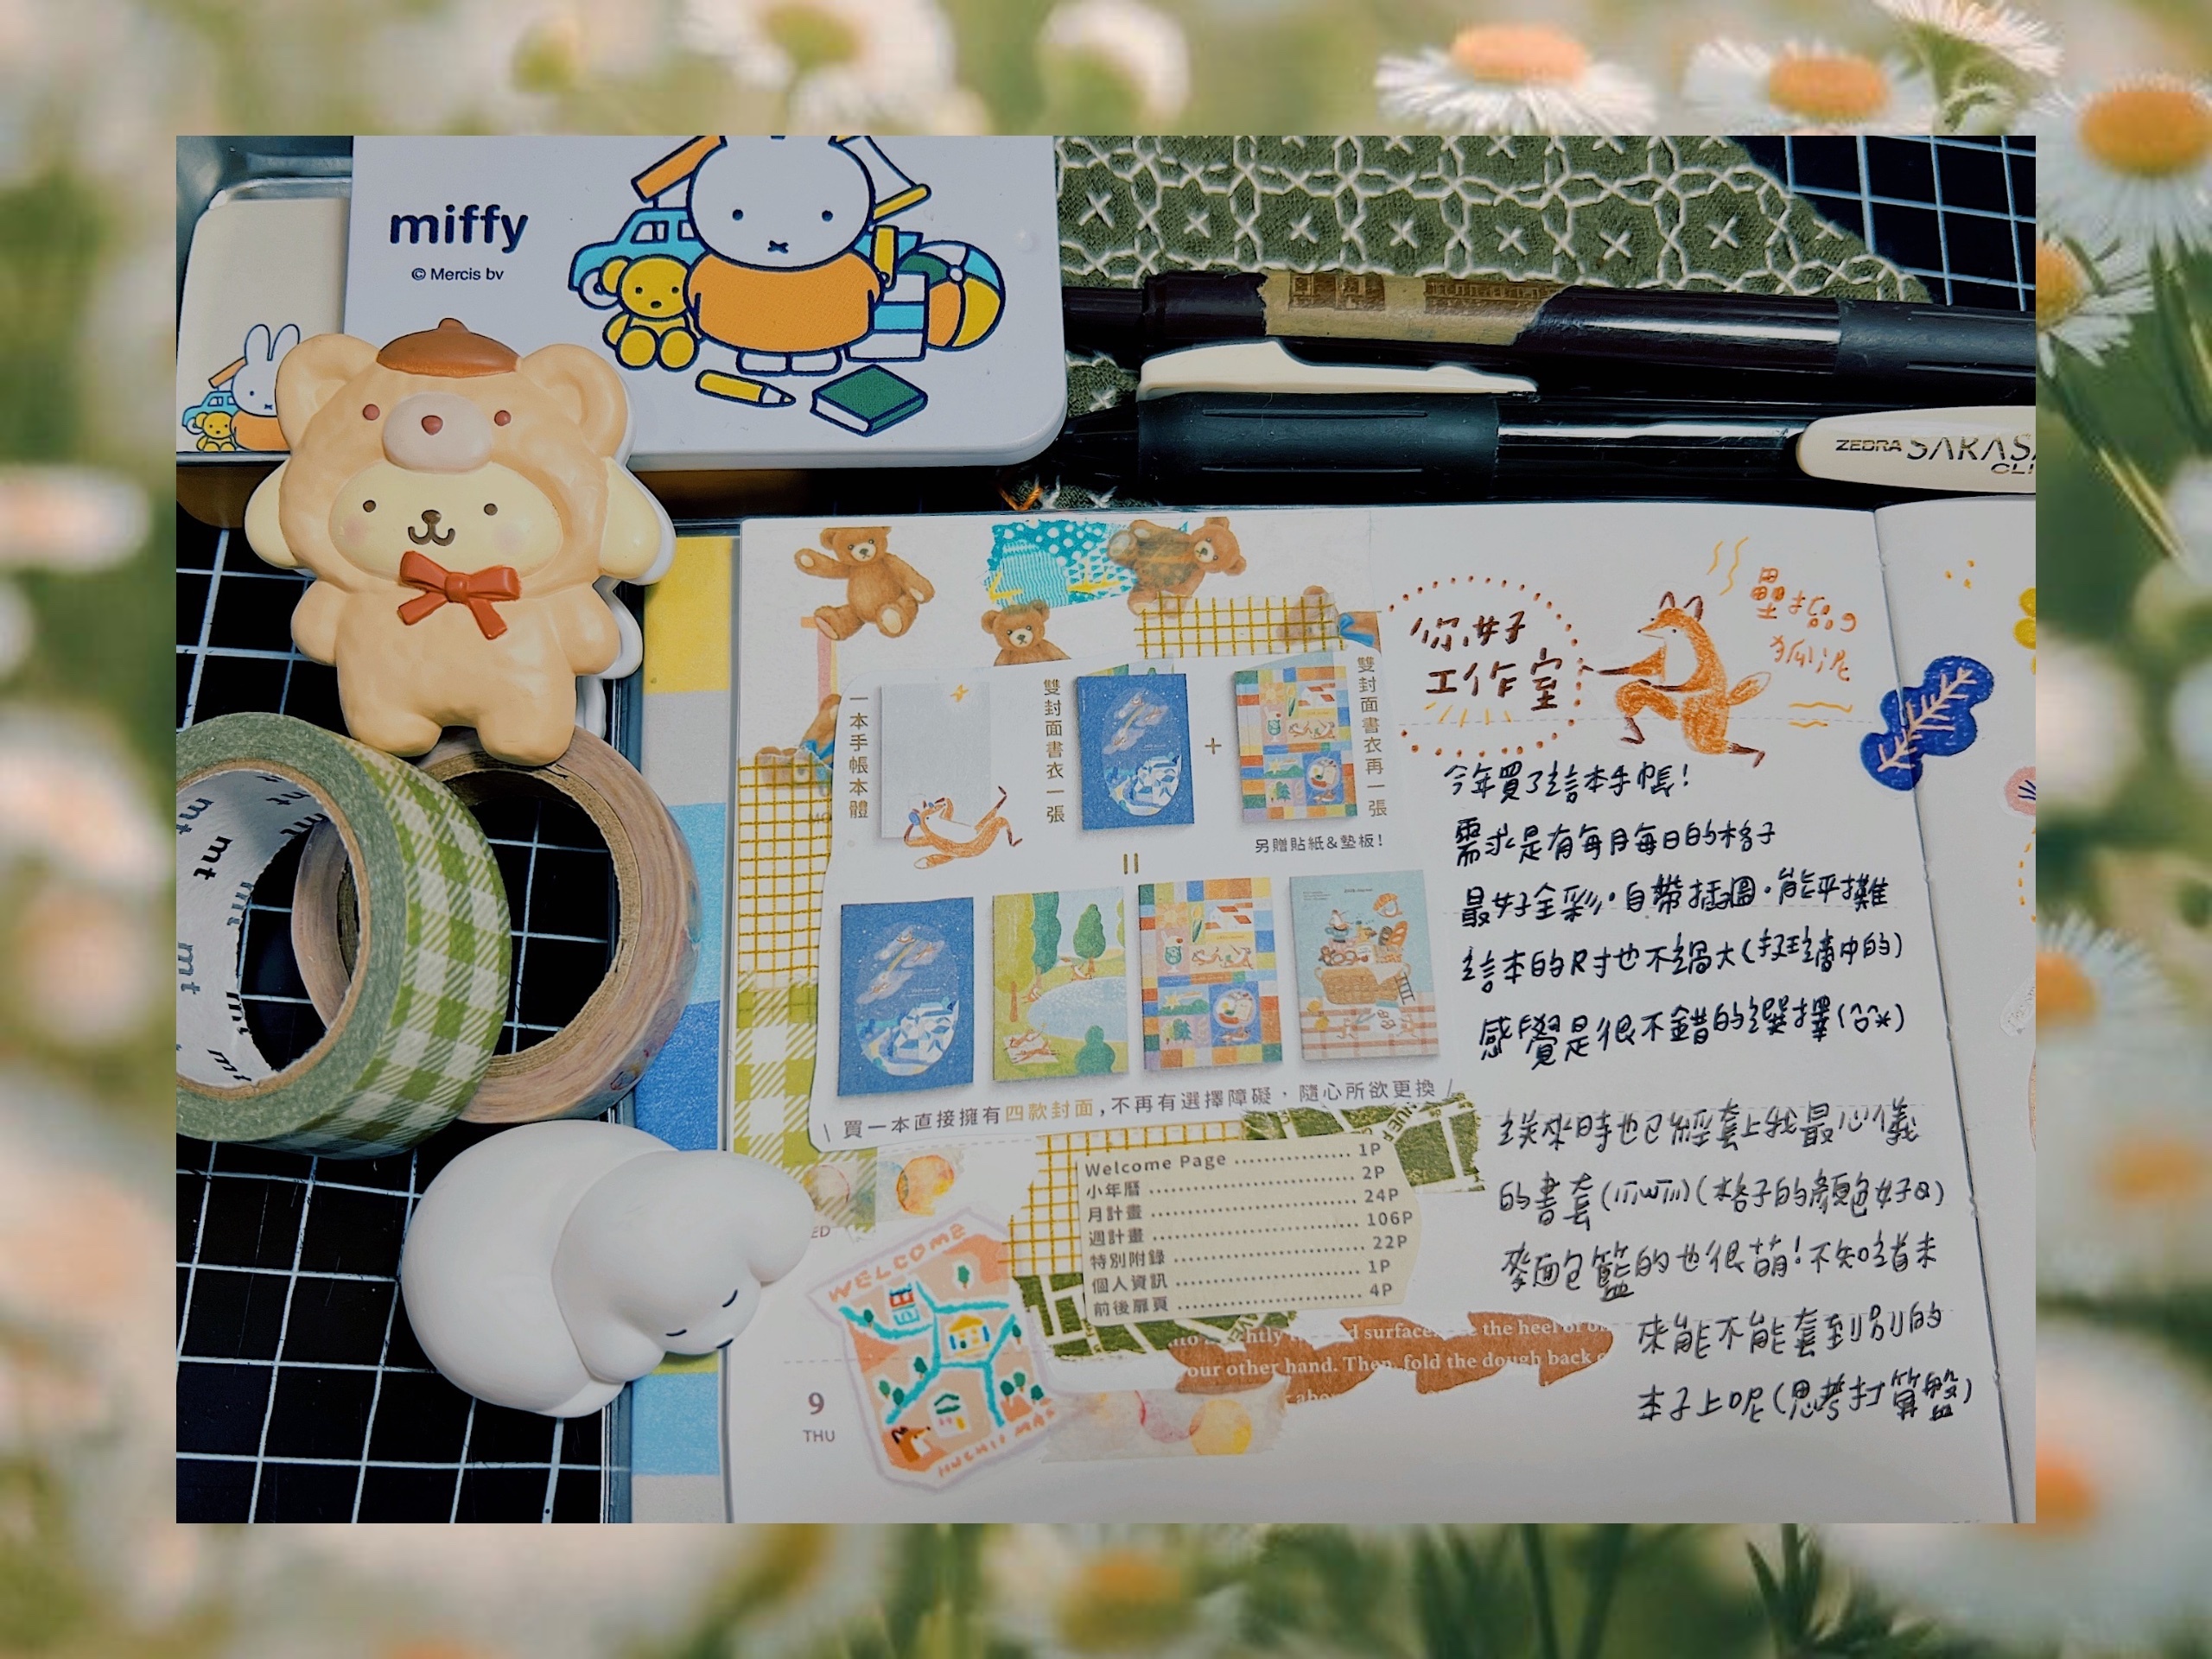 miffy
© Mercis bv
ZEBRA SARASA
CLI
mt
mt
mt
mt
mt
一本手帳本體
雙封面書衣一張
+
雙封面書衣再一張
另贈貼紙&墊板!
=
\ 買一本直接擁有四款封面,不再有選擇障礙,隨心所欲更換 /
Welcome Page ................ 1P
小年曆 ................ 2P
月計畫 ................ 24P
週計畫 ................ 106P
特別附錄 ................ 22P
個人資訊 ................ 1P
前後扉頁 ................ 4P
WELCOME
MAP
ED
9
THU
the heel of
our other hand. Then fold the dough back
你好
工作室
狐泥
今年買了這本手帳!
需求是有每月每日的格子
最好全彩·自帶插圖·能平攤
這本的尺寸也不過大(理想中的)
感覺是很不錯的選擇(^^*)
送來時也已經套上我最心儀
的書套(///ω///)(格子的顏色好Q)
麥面包籃的也很萌!不知道未
來能不能套到別的
本子上呢(思考打算盤)